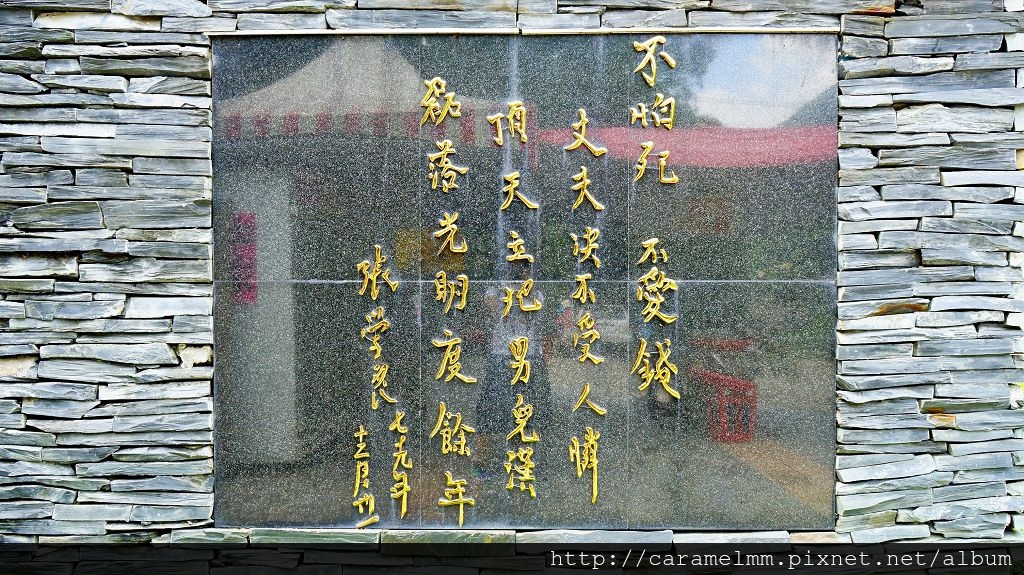 不怕死 不愛錢
丈夫決不受人憐
頂天立地男兒漢
磊落光明度餘年
張學良
七九年
十二月卅一
http://caramelmm.pixnet.net/album